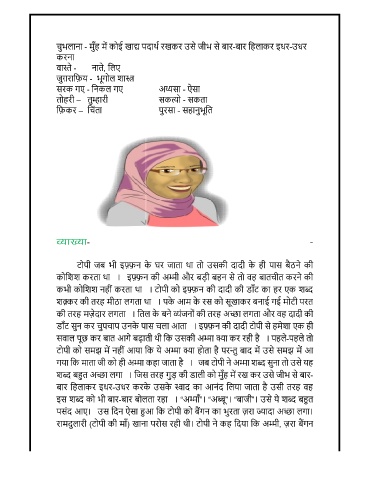 चुभलाना - मुँह में कोई खाद्य पदार्थ रखकर उसे जीभ से बार-बार हिलाकर इधर-उधर
करना
वास्ते - नाते, लिए
जुग़राफ़िया - भूगोल शास्त्र
सरक गए - निकल गए अय्यसा - ऐसा
तोहरी – तुम्हारी सकत्यो - सकता
फ़िकर – चिंता पुरसा - सहानुभूति
व्याख्या- -
टोपी जब भी इफ़्फ़न के घर जाता था तो उसकी दादी के ही पास बैठने की
कोशिश करता था । इफ़्फ़न की अम्मी और बड़ी बहन से तो वह बातचीत करने की
कभी कोशिश नहीं करता था । टोपी को इफ़्फ़न की दादी की डाँट का हर एक शब्द
शक़्कर की तरह मीठा लगता था । पके आम के रस को सूखाकर बनाई गई मोटी परत
की तरह मज़ेदार लगता । तिल के बने व्यंजनों की तरह अच्छा लगता और वह दादी की
डाँट सुन कर चुपचाप उनके पास चला आता । इफ़्फ़न की दादी टोपी से हमेशा एक ही
सवाल पूछ कर बात आगे बढ़ाती थी कि उसकी अम्मा क्या कर रही है । पहले-पहले तो
टोपी को समझ में नहीं आया कि ये अम्मा क्या होता है परन्तु बाद में उसे समझ में आ
गया कि माता जी को ही अम्मा कहा जाता है । जब टोपी ने अम्मा शब्द सुना तो उसे यह
शब्द बहुत अच्छा लगा । जिस तरह गुड़ की डाली को मुँह में रख कर उसे जीभ से बार-
बार हिलाकर इधर-उधर करके उसके स्वाद का आनंद लिया जाता है उसी तरह वह
इस शब्द को भी बार-बार बोलता रहा । "अम्माँ"। "अब्बू"। "बाजी"। उसे ये शब्द बहुत
पसंद आए। उस दिन ऐसा हुआ कि टोपी को बैंगन का भुरता ज़रा ज्यादा अच्छा लगा।
रामदुलारी (टोपी की माँ) खाना परोस रही थी। टोपी ने कह दिया कि अम्मी, ज़रा बैंगन